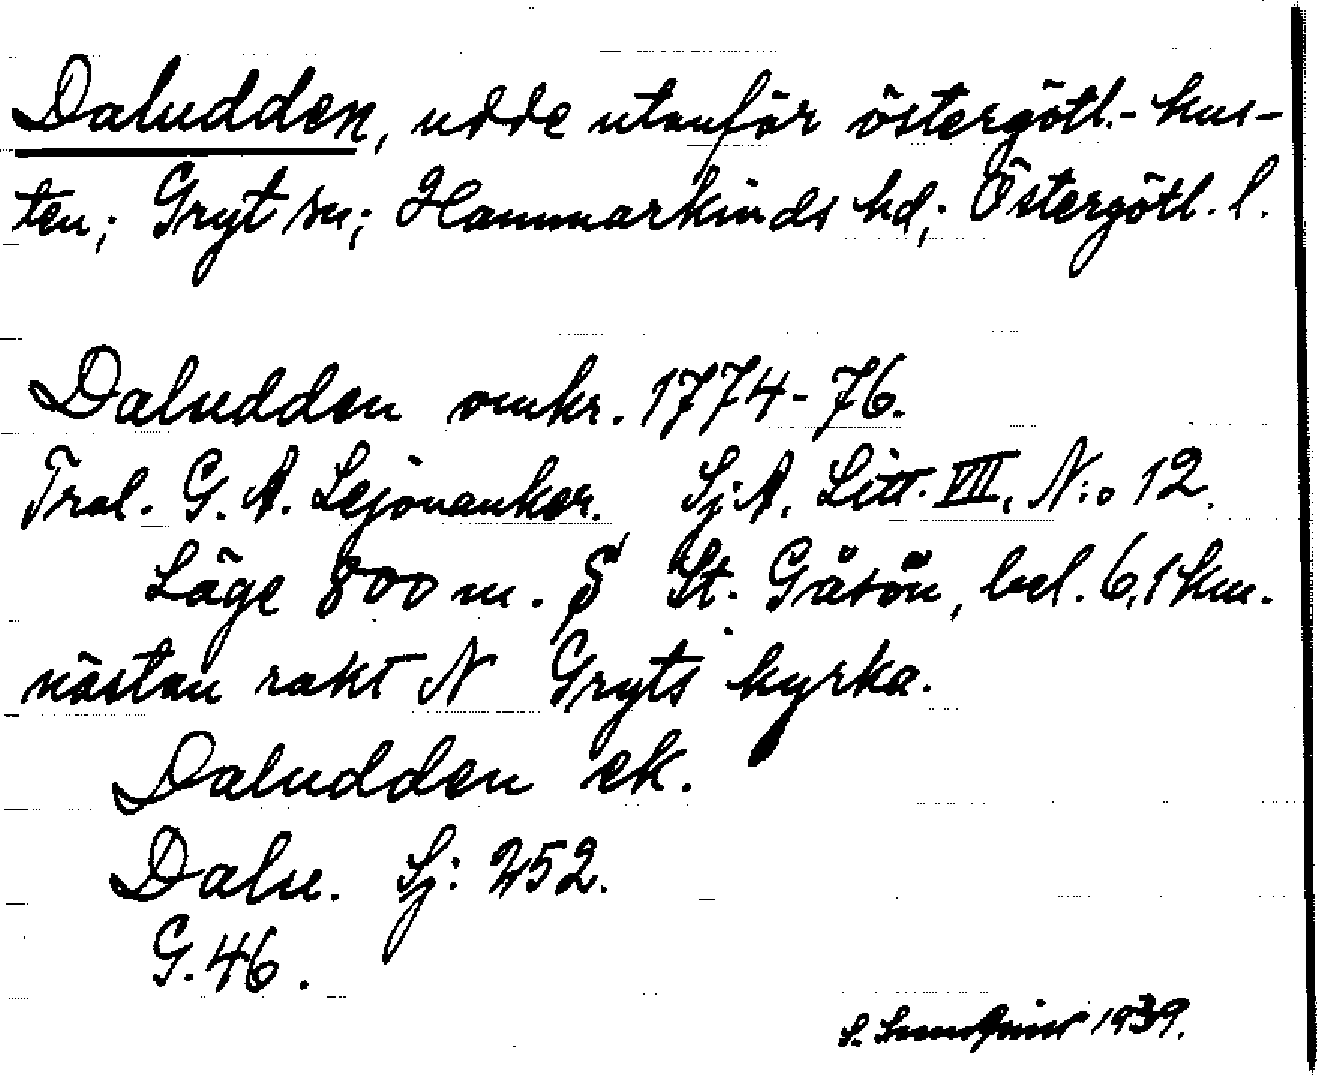 Daludden, udde utanför östergötl.- kus-
ten; Gryt sn; Hammarkinds hd; Östergötl. l.
Daludden omkr. 1774-76.
Tral. G. A. Lejonanker. Sj:A. Litt. VII, N:o 12.
Läge 800 m. S St. Gåsön, bel. 6,1 km.
nästan rakt N Gryts kyrka.
Daludden ek.
Dalu. Sj: 252.
G. 46.
S. 1939.